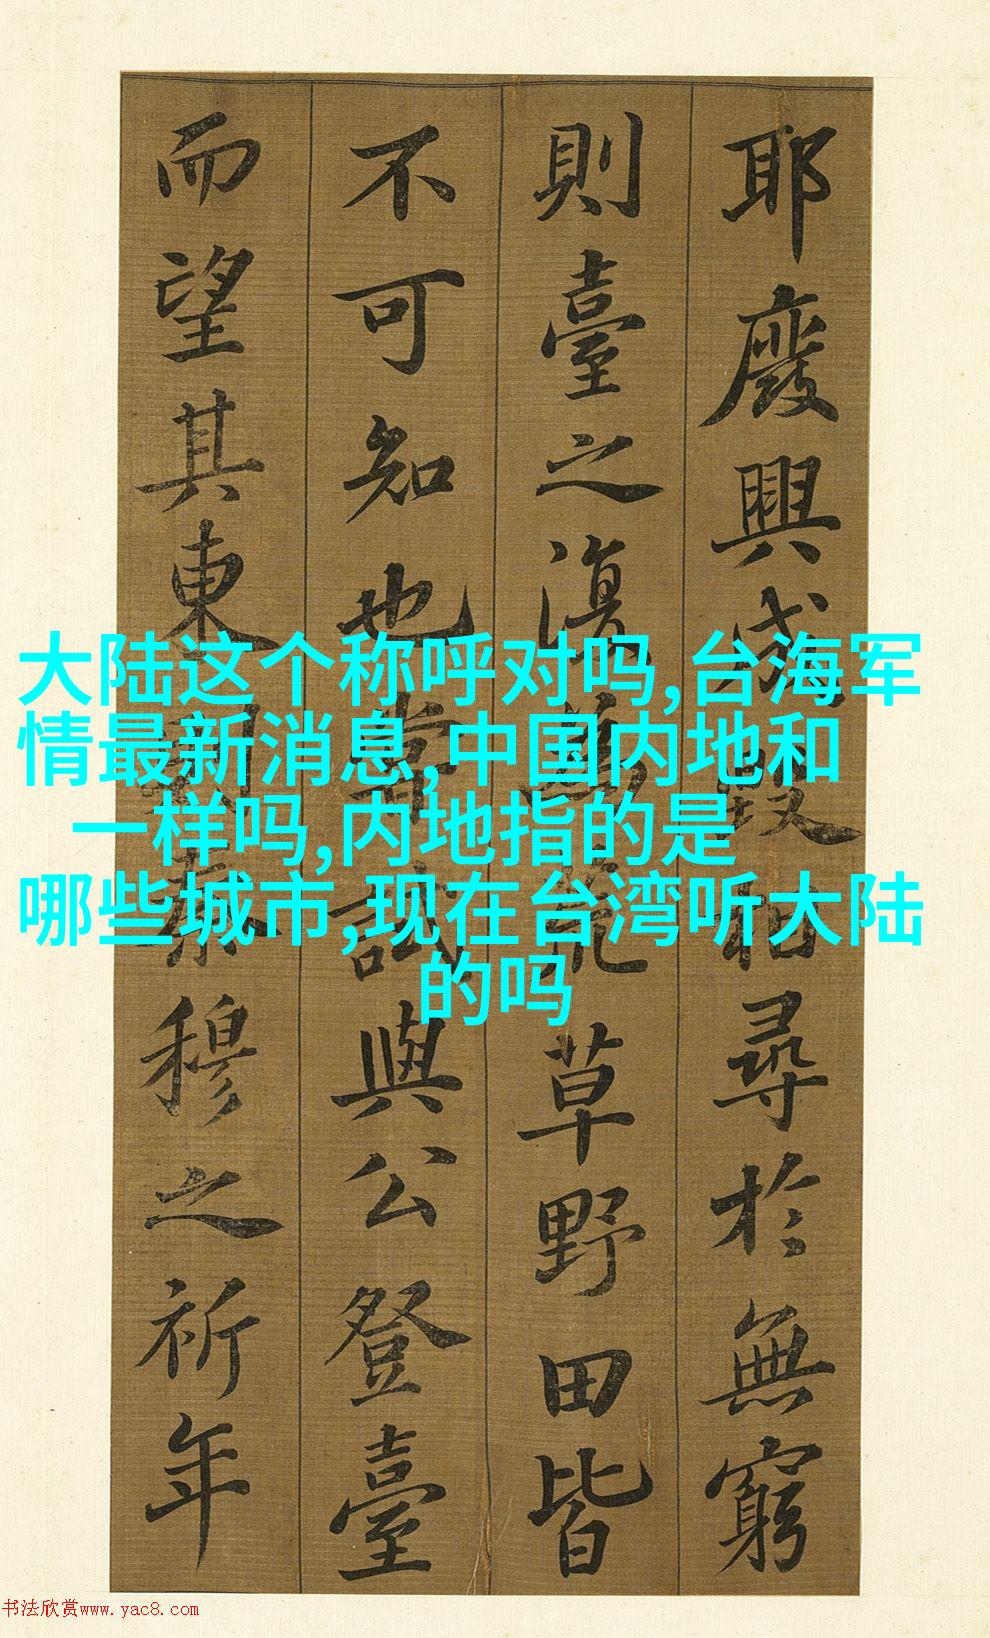 耶廢興成毀相尋於無窮
則臺之復為荒草野田皆
不可知也嘗試與公登臺
而望其東則秦穆之祈年
大陆这个称呼对吗,台海军
情最新消息,中国内地和
一样吗,内地指的是
哪些城市,现在台湾听大陆
的吗
书法欣赏www.yac8.com